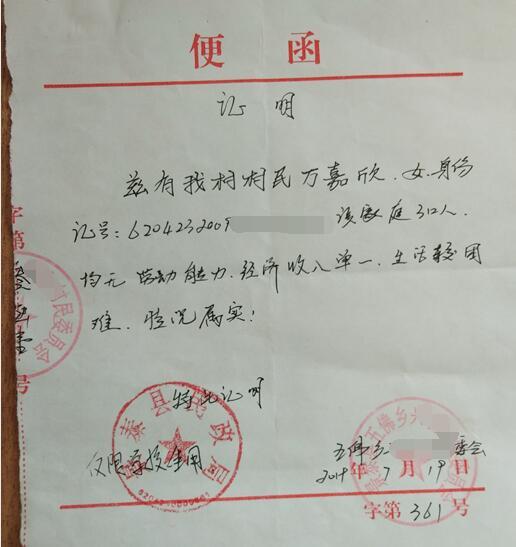 便函
证明
兹有我村村民万嘉欣.女.身份
证号:6204232009 该家庭3口人.
均无劳动能力.经济收入单一.生活较困
难.情况属实!
特此证明
仅限学校使用
五佛乡 委会
2019年7月19日
字第361号
字第 号
村民委员会
景泰县民政局
景泰县五佛乡